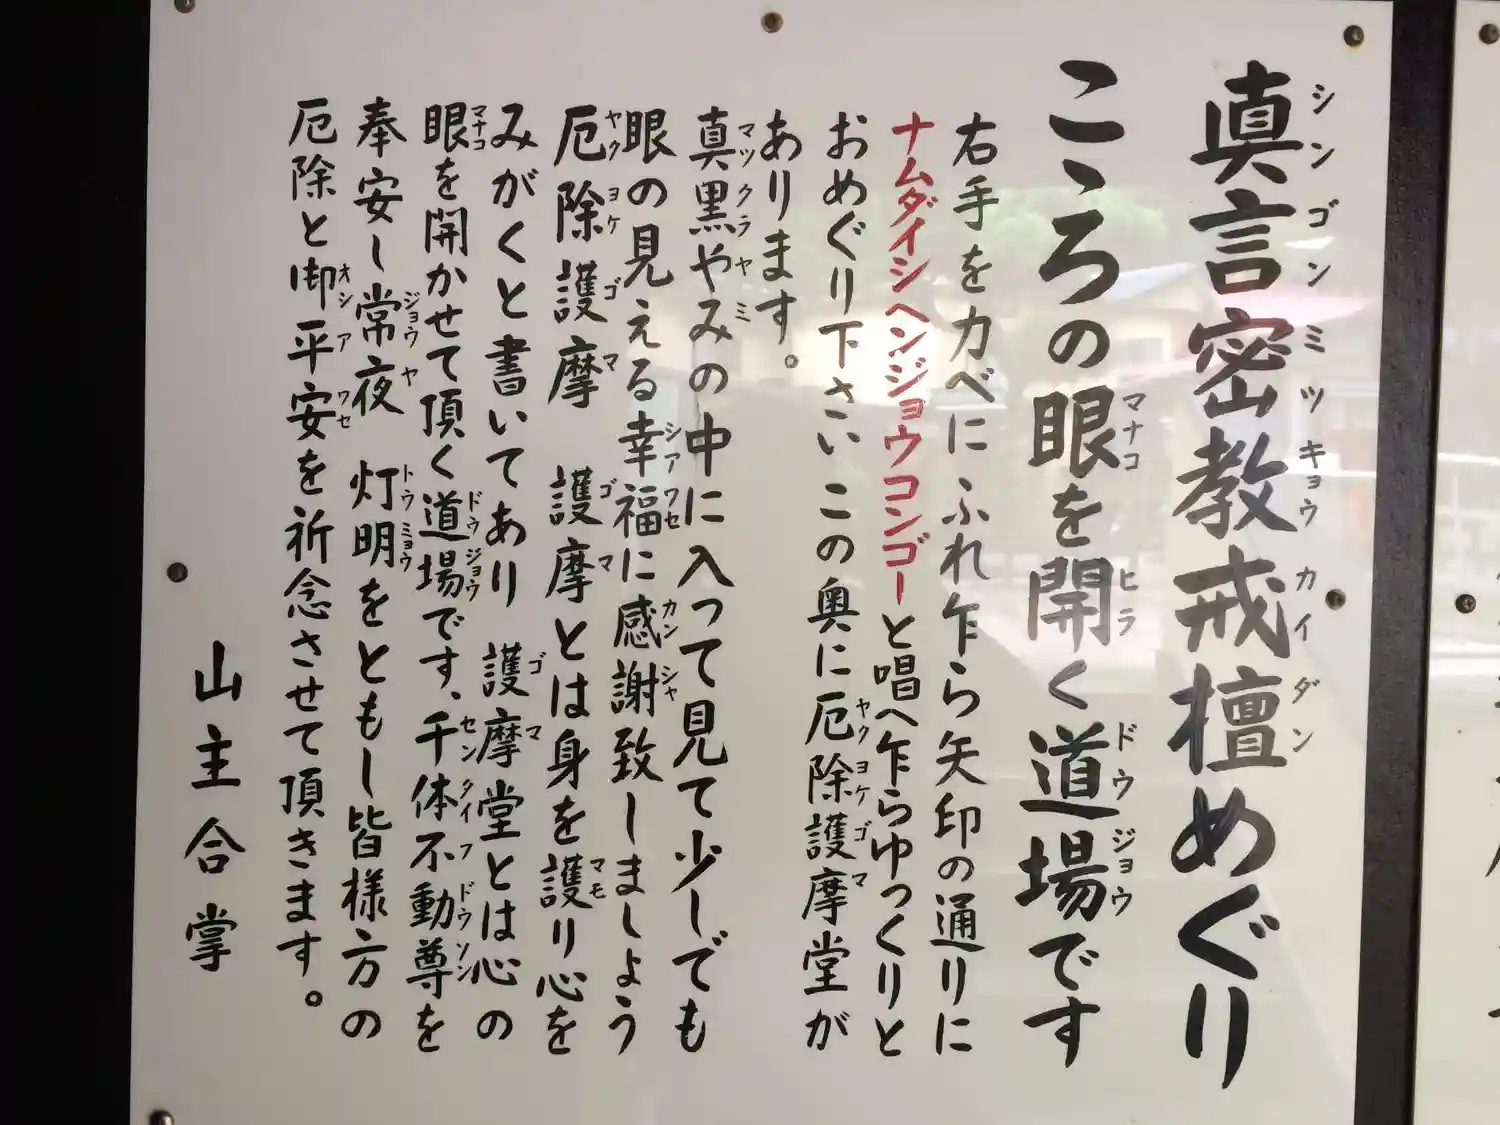 眞言密教戒壇めぐり
こゝろの眼を開く道場です
右手をカベにふれ乍ら矢印の通りに
ナムダイシヘンジョウコンゴーと唱へ乍らゆっくりと
おめぐり下さい この奥に厄除護摩堂が
あります。
真黒やみの中に入って見て少しでも
眼の見える幸福に感謝致しましょう
厄除護摩 護摩とは身を護り心を
みがくと書いてあり 護摩堂とは心の
眼を開かせて頂く道場です、千体不動尊を
奉安し常夜 灯明をともし皆様方の
厄除と御平安を祈念させて頂きます。
山主合掌